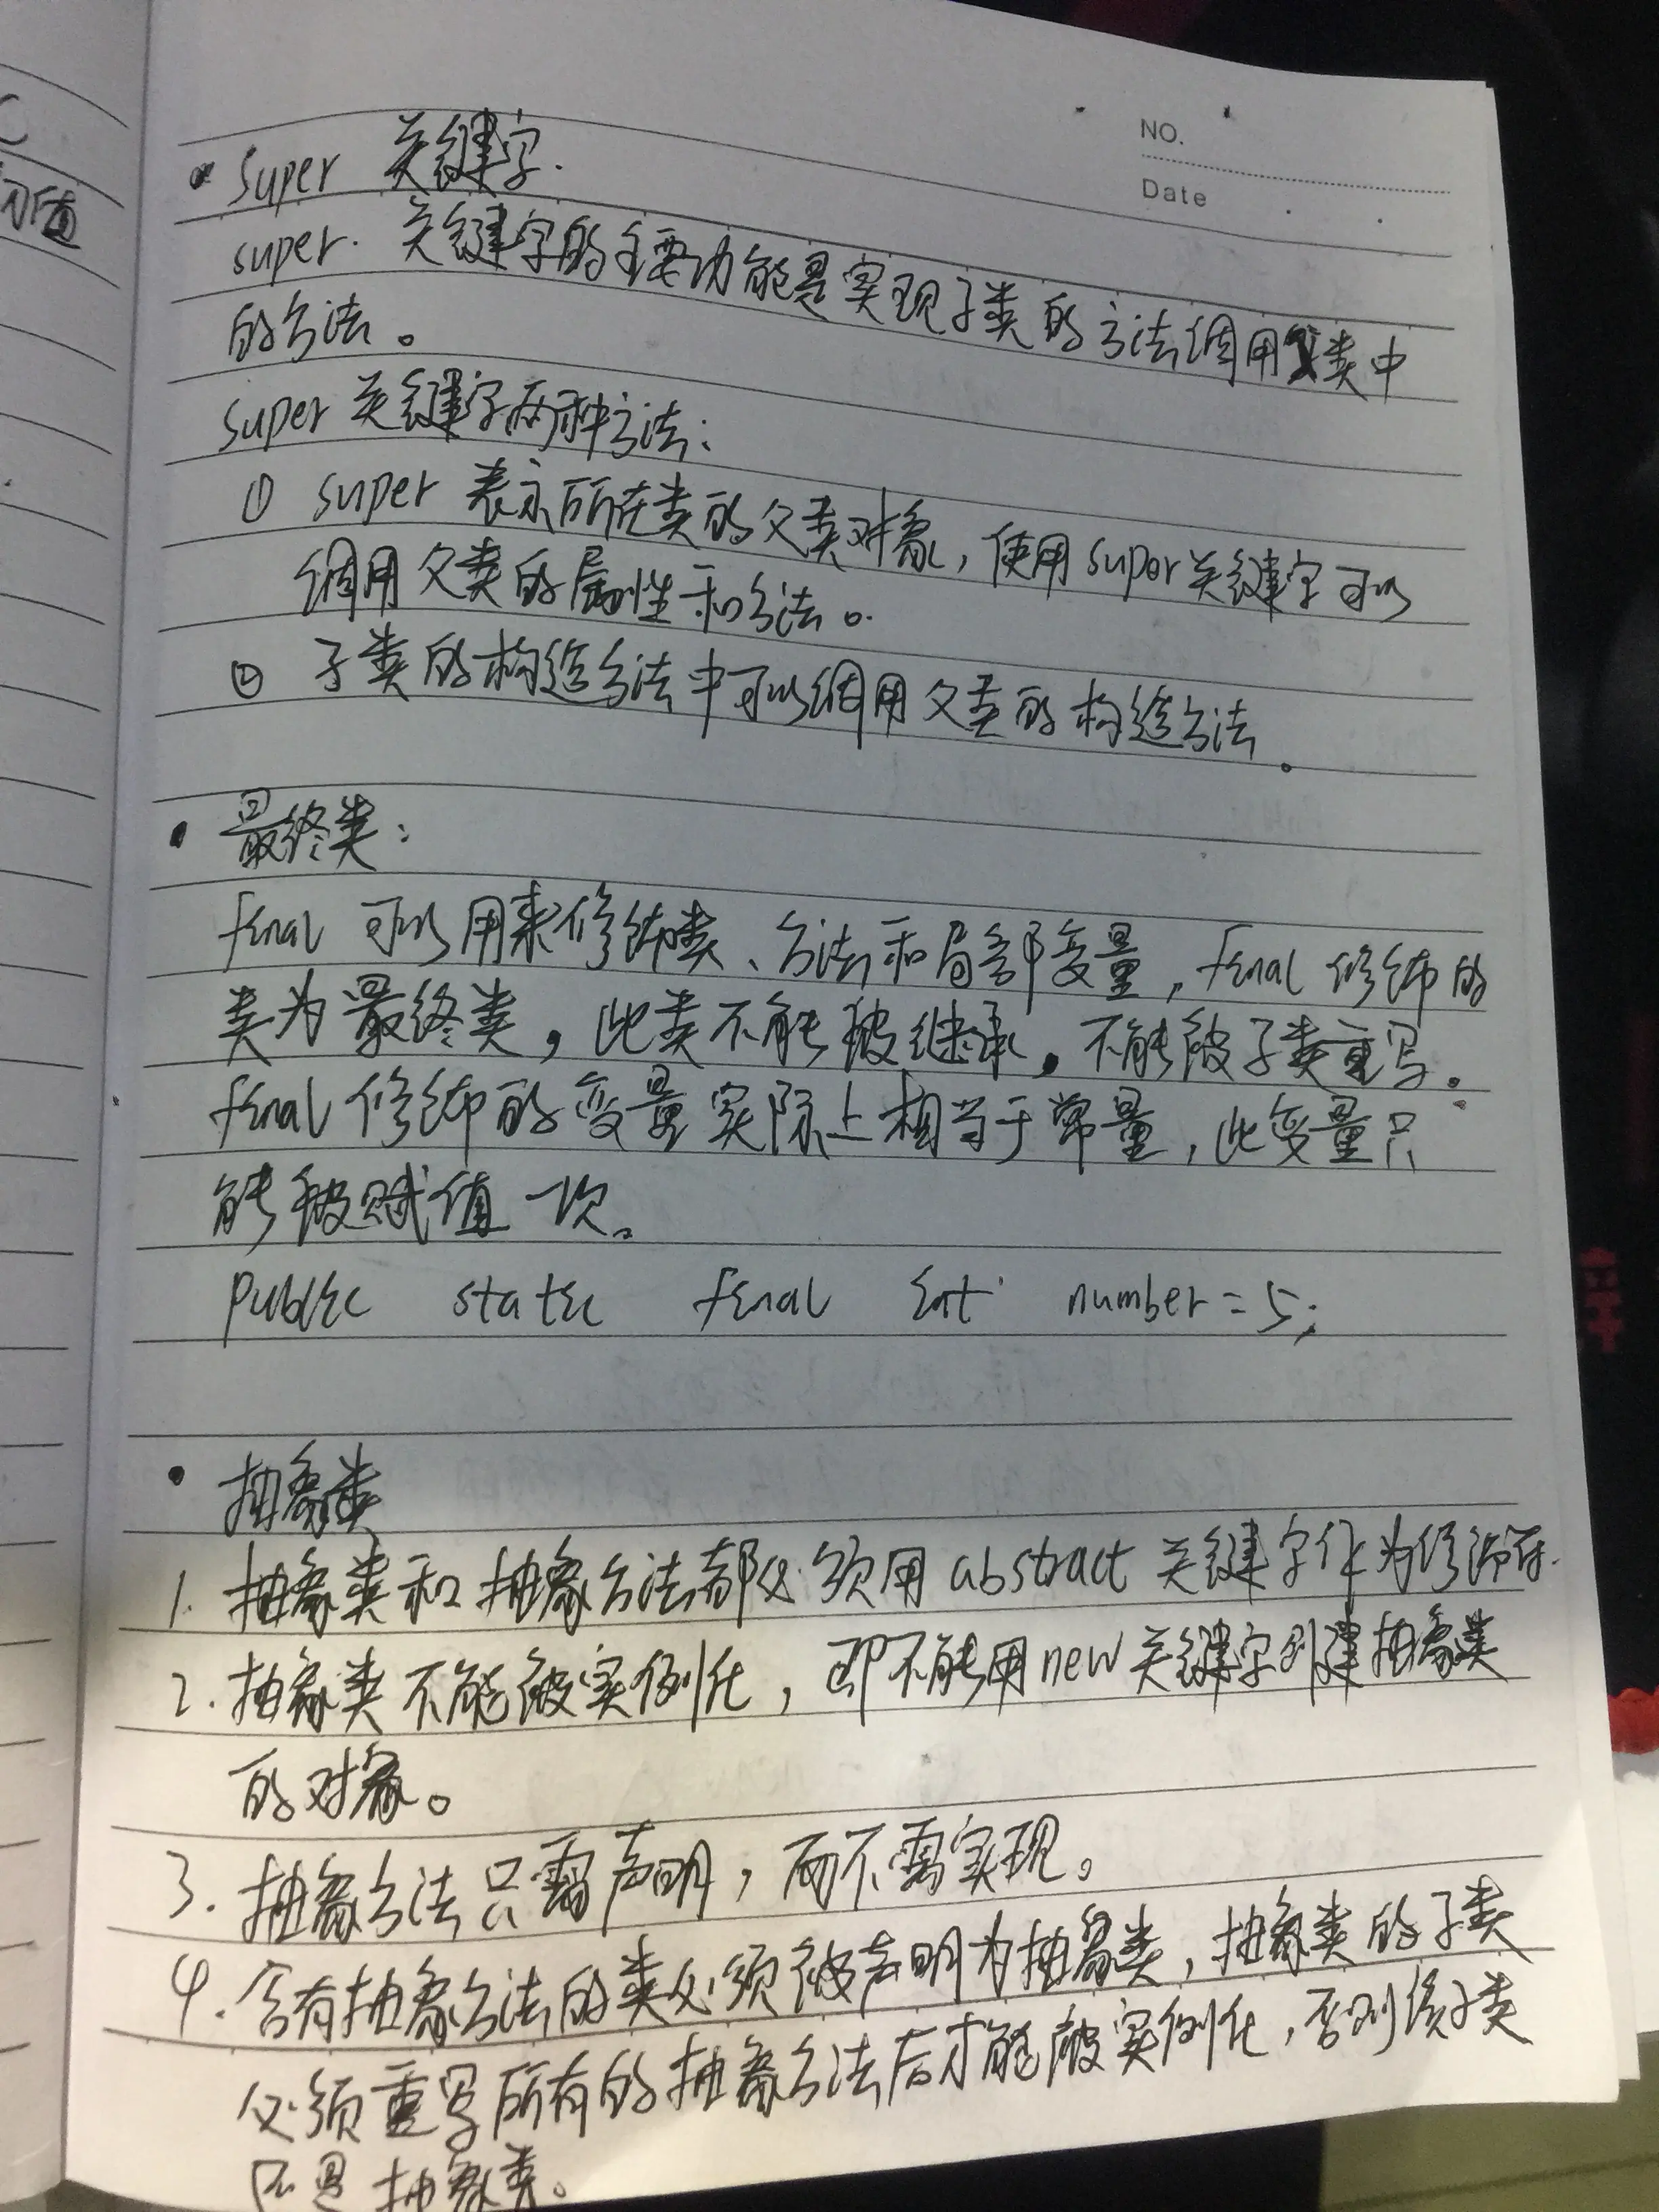 NO.
Date
super 关键字.
super. 关键字的主要功能是实现子类的方法调用父类中
的方法。
super 关键字两种方法:
① super 表示所在类的父类对象,使用super关键字可以
调用父类的属性和方法。
② 子类的构造方法中可以调用父类的构造方法。
最终类:
final 可以用来修饰类、方法和局部变量,final 修饰的
类为最终类,此类不能被继承。不能被子类重写.
final 修饰的变量实际上相当于常量,此变量只
能被赋值一次。
public static final int number=5;
抽象类
1. 抽象类和抽象方法都必须用 abstract 关键字作为修饰符.
2. 抽象类不能被实例化,即不能用new关键字创建抽象类
的对象。
3. 抽象方法只需声明,而不需实现。
4. 含有抽象方法的类必须被声明为抽象类,抽象类的子类
必须重写所有的抽象方法后才能被实例化,否则该子类
还是抽象类。
值